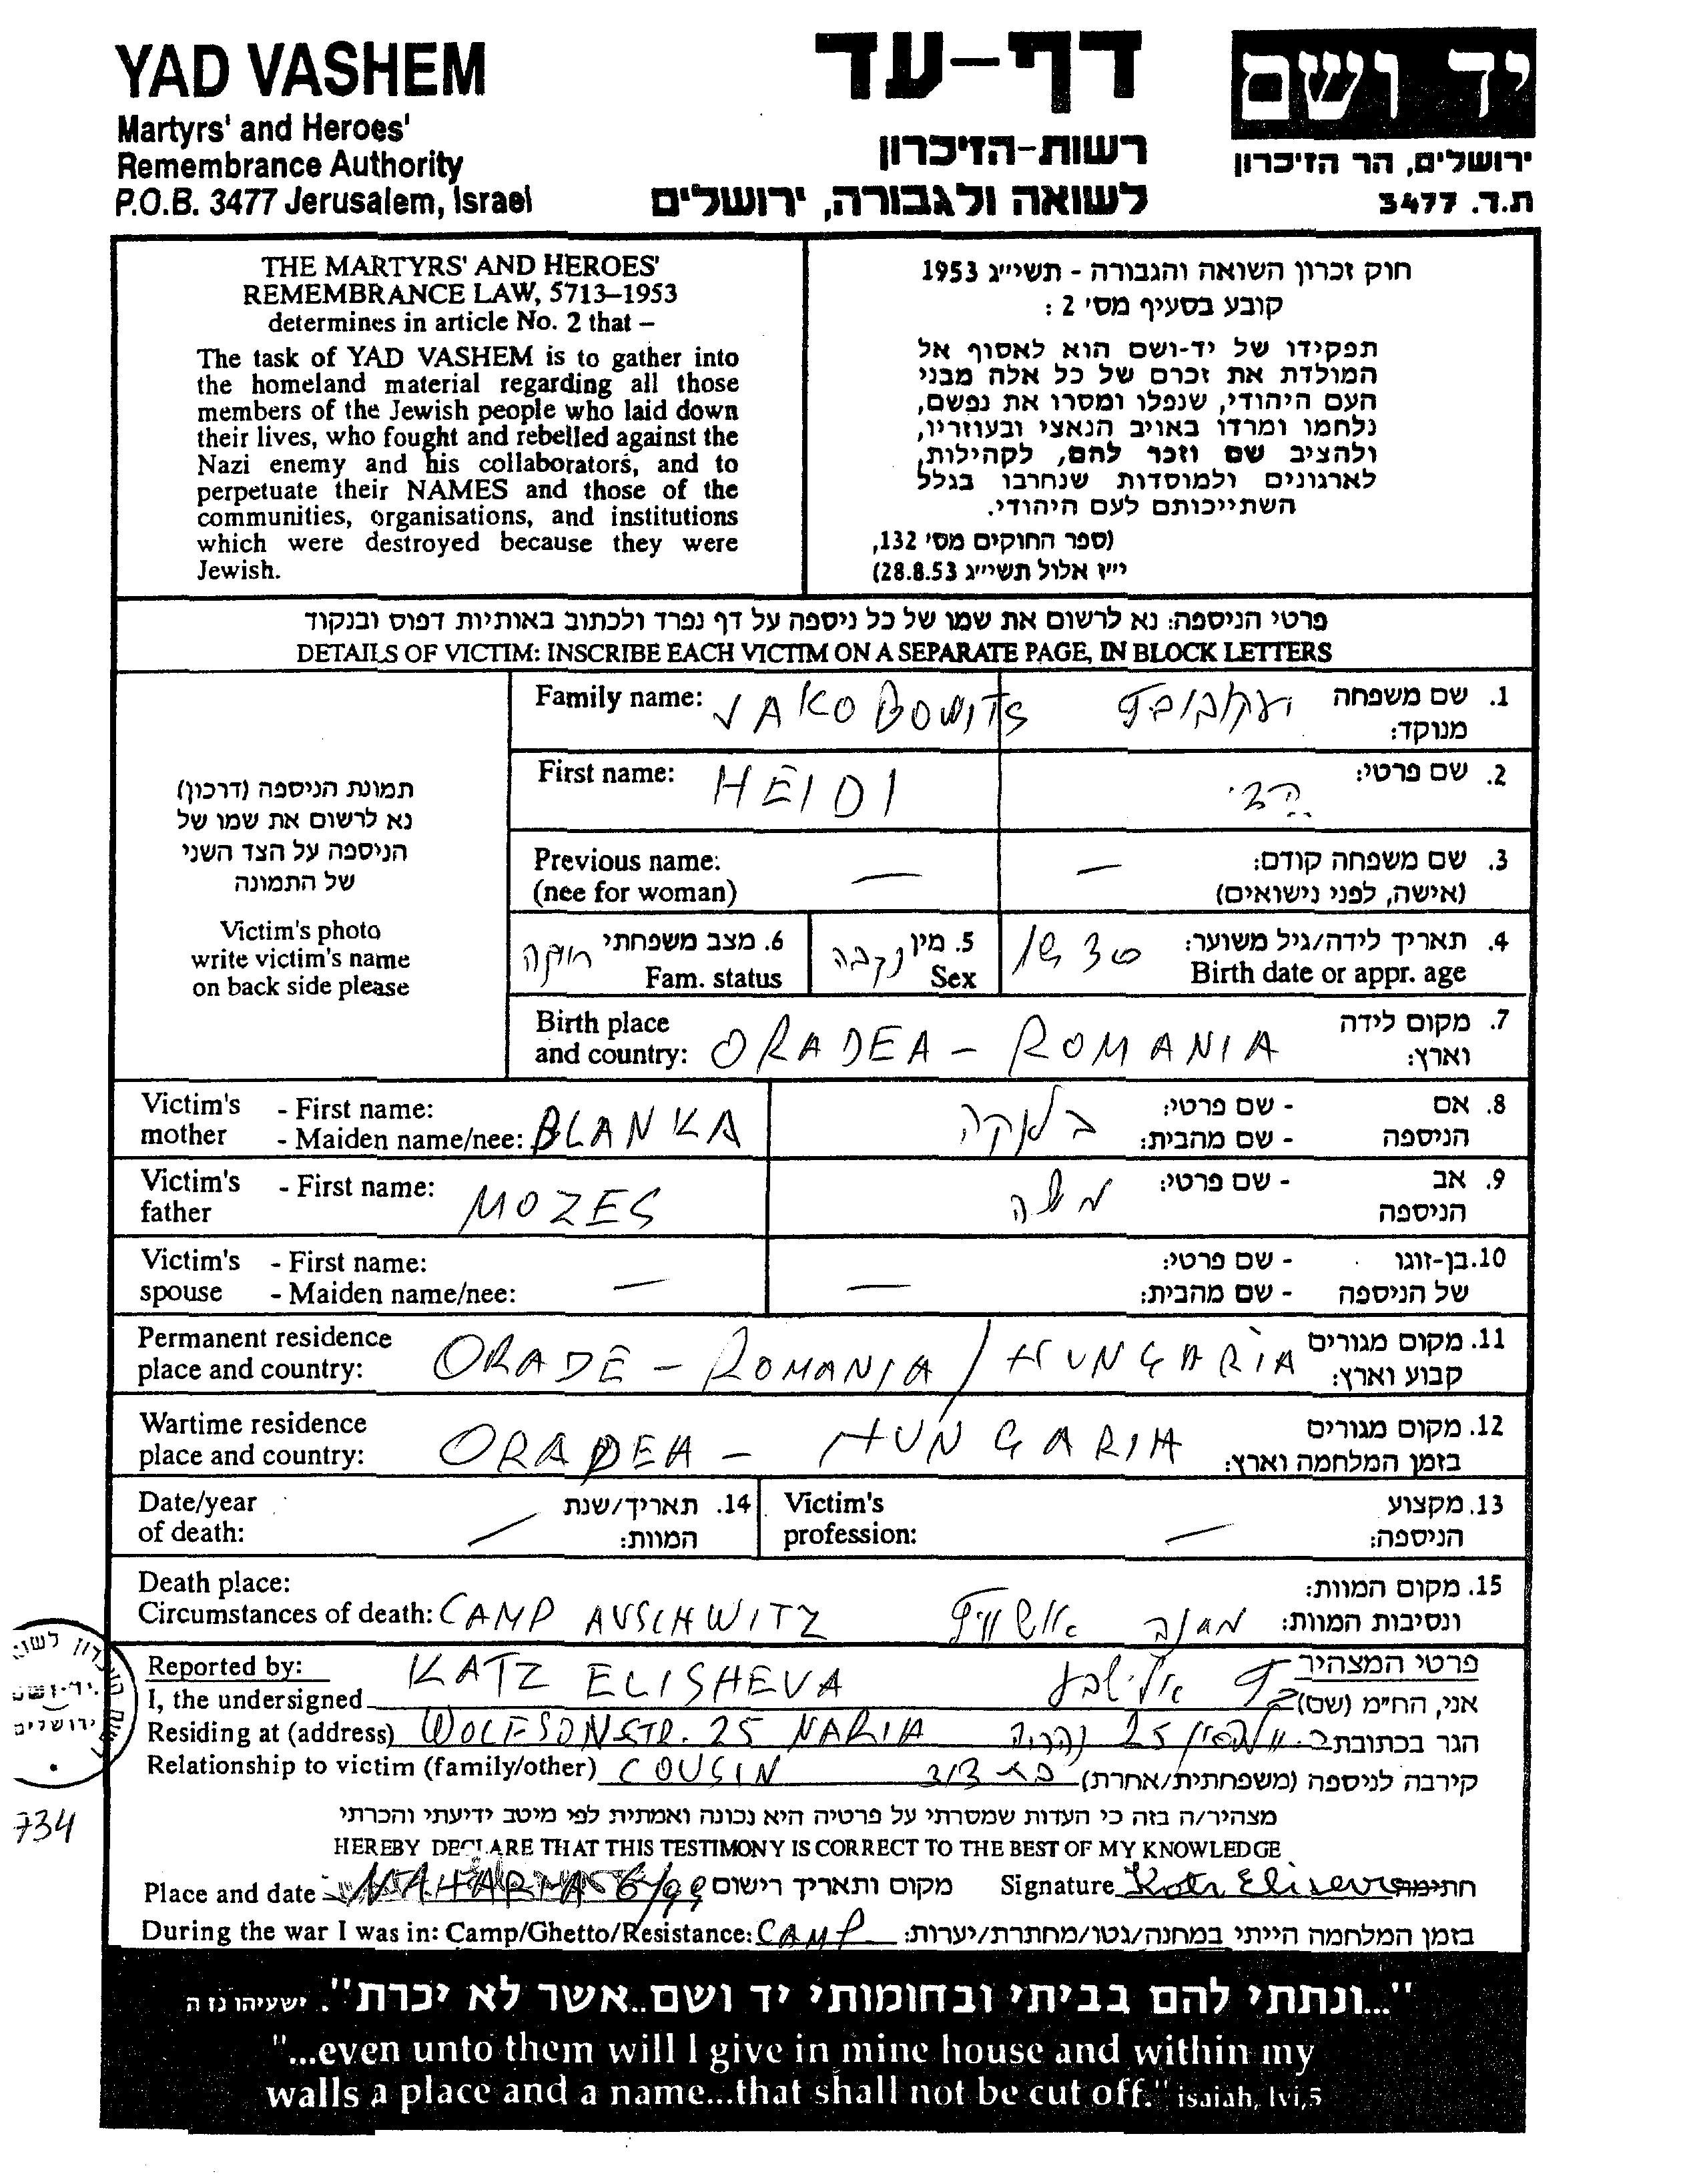 YAD VASHEM
Martyrs' and Heroes'
Remembrance Authority
P.O.B. 3477 Jerusalem, Israel
דף-עד
רשות-הזיכרון
לשואה ולגבורה, ירושלים
יד ושם
ירושלים, הר הזיכרון
ת.ד. 3477
THE MARTYRS' AND HEROES'
REMEMBRANCE LAW, 5713–1953
determines in article No. 2 that –
The task of YAD VASHEM is to gather into
the homeland material regarding all those
members of the Jewish people who laid down
their lives, who fought and rebelled against the
Nazi enemy and his collaborators, and to
perpetuate their NAMES and those of the
communities, organisations, and institutions
which were destroyed because they were
Jewish.
חוק זכרון השואה והגבורה - תשי״ג 1953
קובע בסעיף מס׳ 2 :
תפקידו של יד-ושם הוא לאסוף אל
המולדת את זכרם של כל אלה מבני
העם היהודי, שנפלו ומסרו את נפשם,
נלחמו ומרדו באויב הנאצי ובעוזריו,
ולהציב שם וזכר להם, לקהילות,
לארגונים ולמוסדות שנחרבו בגלל
השתייכותם לעם היהודי.
(ספר החוקים מס׳ 132,
י״ז אלול תשי״ג 28.8.53)
פרטי הניספה: נא לרשום את שמו של כל ניספה על דף נפרד ולכתוב באותיות דפוס ובנקוד
DETAILS OF VICTIM: INSCRIBE EACH VICTIM ON A SEPARATE PAGE, IN BLOCK LETTERS
תמונת הניספה (דרכון)
נא לרשום את שמו של
הניספה על הצד השני
של התמונה
Victim's photo
write victim's name
on back side please
Family name: JAKOBOWITS יעקובוביץ 1. שם משפחה
מנוקד:
First name: HEIDI הדי 2. שם פרטי:
Previous name: — — 3. שם משפחה קודם:
(nee for woman) (אישה, לפני נישואים)
6. מצב משפחתי רווקה 5. מין נקבה 4. תאריך לידה/גיל משוער:
Fam. status Sex Birth date or appr. age
Birth place 7. מקום לידה
and country: ORADEA - ROMANIA וארץ:
Victim's - First name: - שם פרטי: 8. אם
mother - Maiden name/nee: BLANKA בלנקה - שם מהבית: הניספה
Victim's - First name: MOZES משה - שם פרטי: 9. אב
father הניספה
Victim's - First name: - שם פרטי: 10. בן-זוגו
spouse - Maiden name/nee: — — - שם מהבית: של הניספה
Permanent residence 11. מקום מגורים
place and country: ORADE - ROMANIA / HUNGARIA קבוע וארץ:
Wartime residence 12. מקום מגורים
place and country: ORADEA - HUNGARIA בזמן המלחמה וארץ:
Date/year 14. תאריך/שנת Victim's 13. מקצוע
of death: — המוות: profession: — הניספה:
Death place: 15. מקום המוות:
Circumstances of death: CAMP AUSCHWITZ מחנה אושוויץ ונסיבות המוות:
Reported by: פרטי המצהיר
I, the undersigned KATZ ELISHEVA כץ אלישבע אני, הח״מ (שם)
Residing at (address) WOLFSONSTR. 25 NARIA וולפסון 25 נהריה הגר בכתובת
Relationship to victim (family/other) COUSIN בת דוד קירבה לניספה (משפחתית/אחרת)
מצהיר/ה בזה כי העדות שמסרתי על פרטיה היא נכונה ואמתית לפי מיטב ידיעתי והכרתי
HEREBY DECLARE THAT THIS TESTIMONY IS CORRECT TO THE BEST OF MY KNOWLEDGE
Place and date 6/99 מקום ותאריך רישום Signature Katz Eliseva חתימה
During the war I was in: Camp/Ghetto/Resistance: CAMP בזמן המלחמה הייתי במחנה/גטו/מחתרת/יערות:
יד-ושם
ירושלים
734
"...ונתתי להם בביתי ובחומותי יד ושם..אשר לא יכרת". ישעיהו נז ה
"...even unto them will I give in mine house and within my
walls a place and a name...that shall not be cut off." isaiah, lvi,5